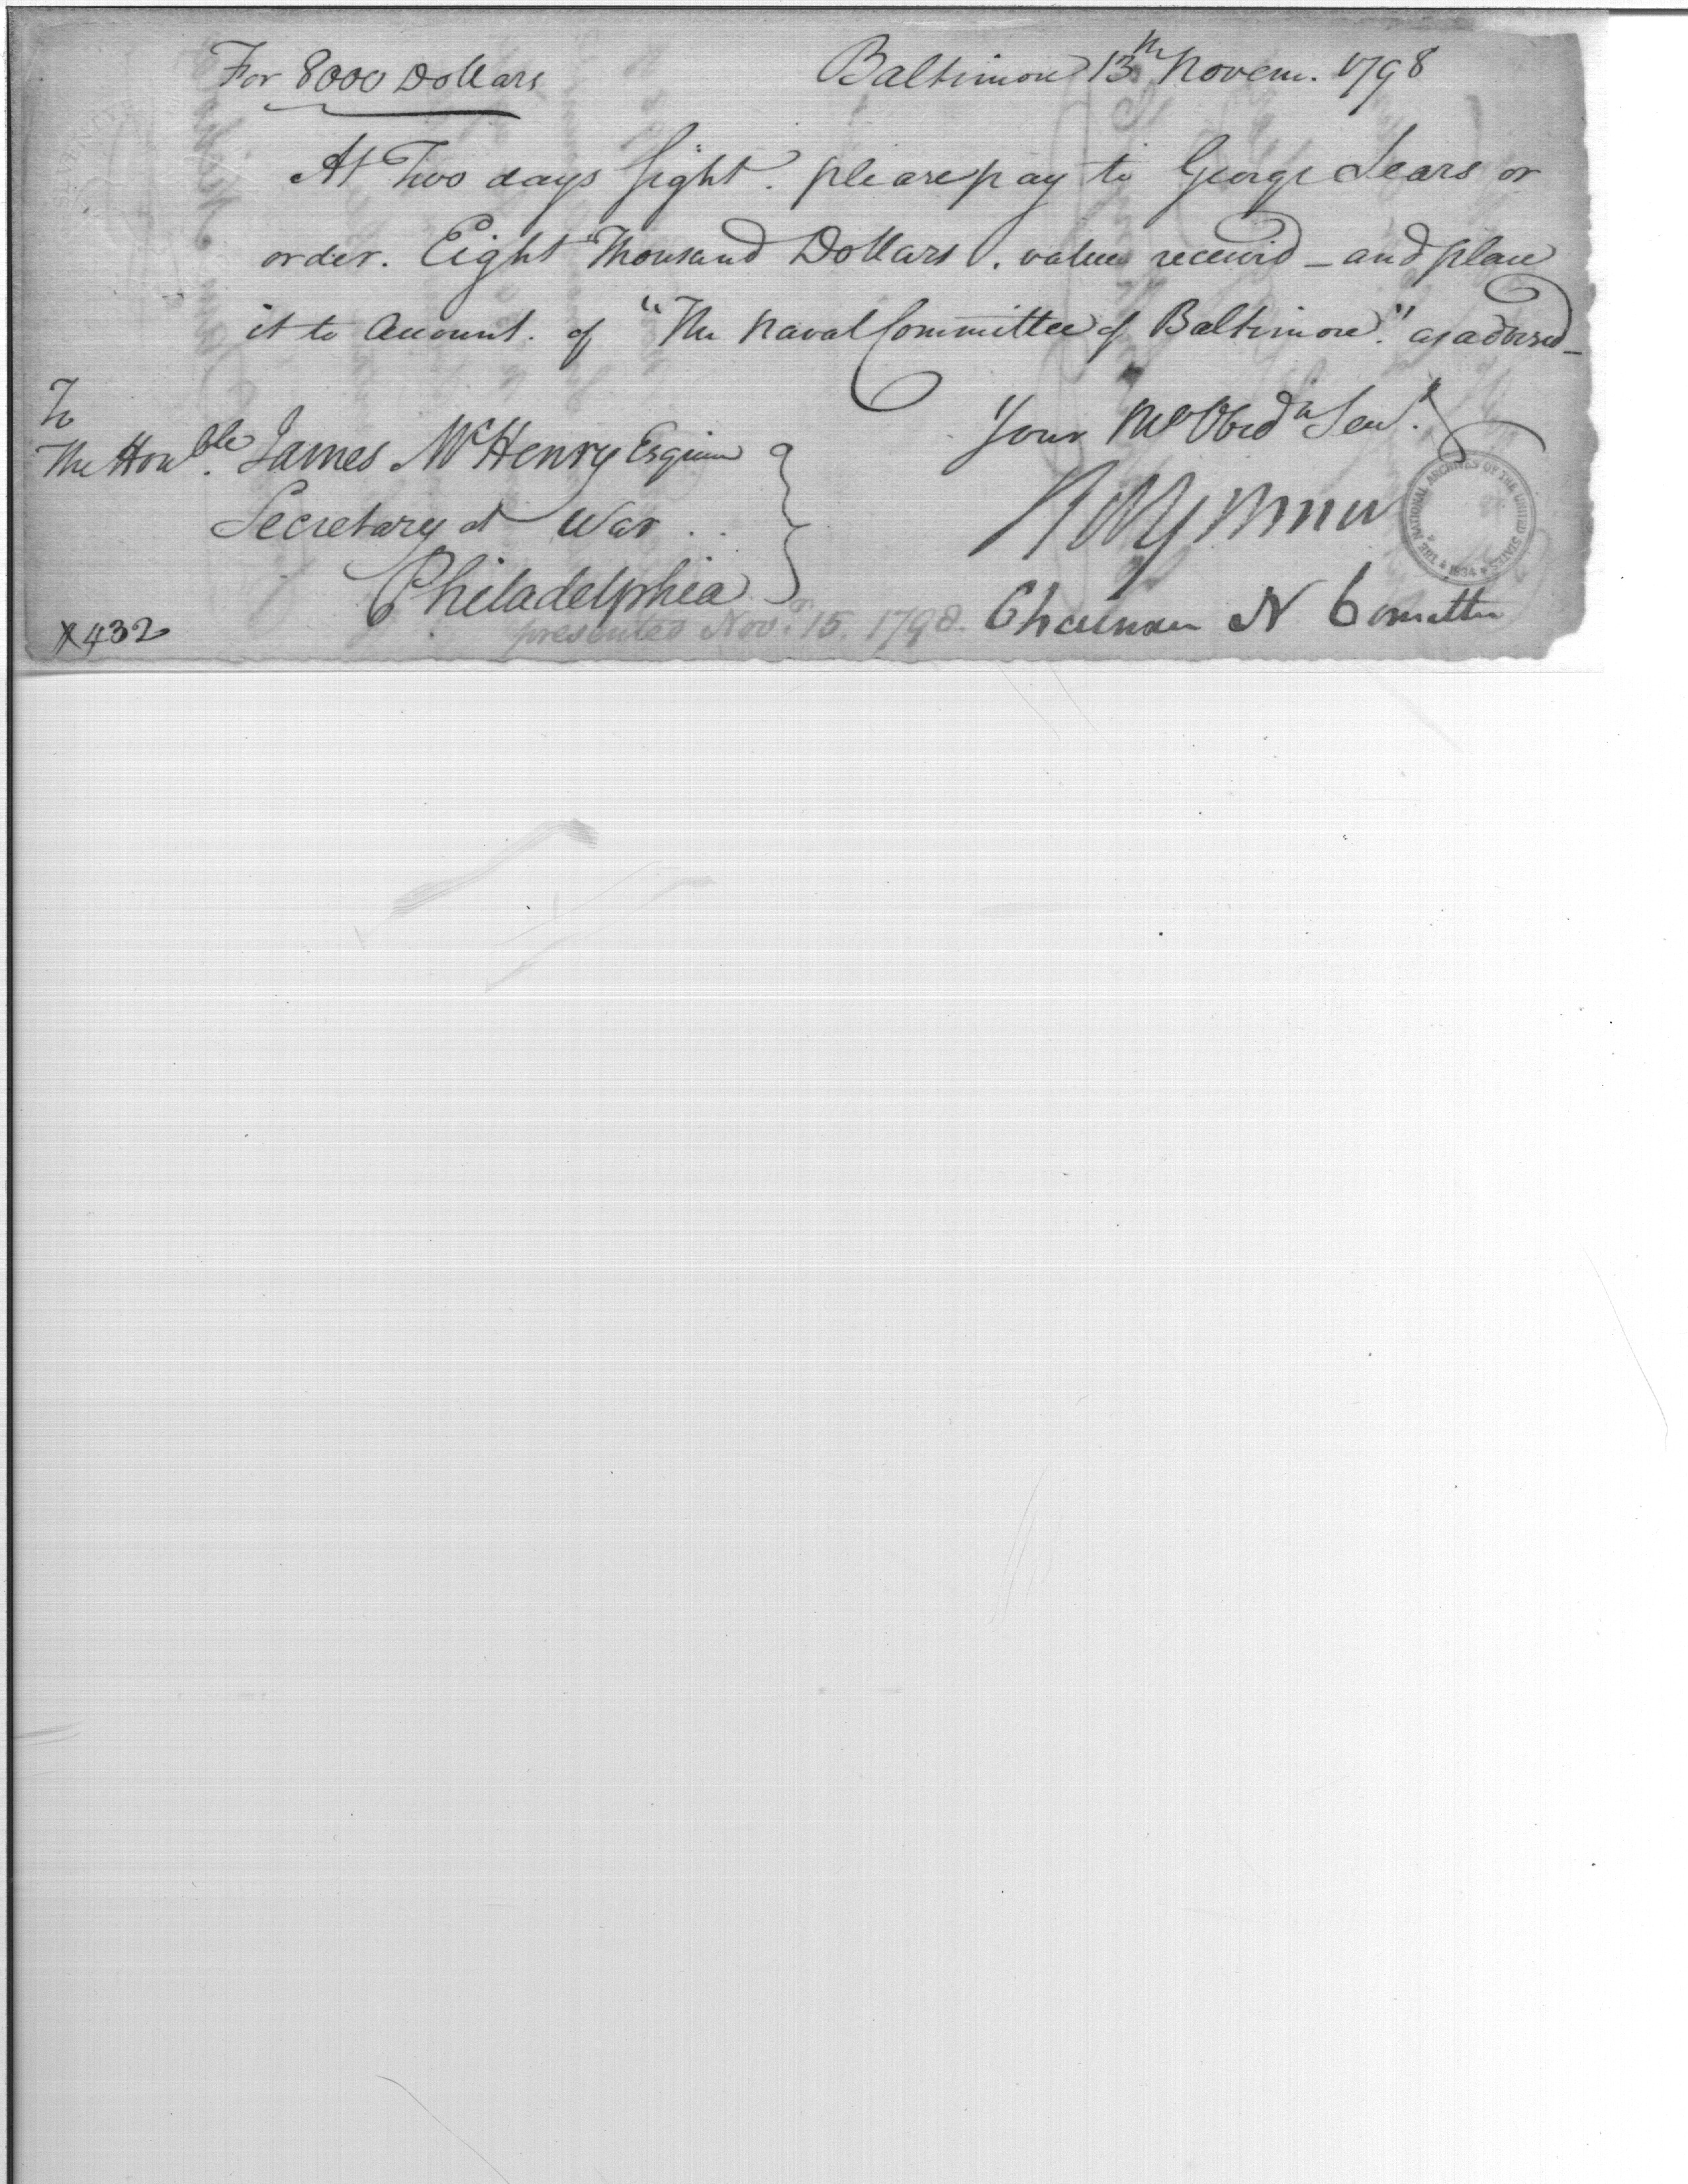 For 8000 Dollars
Baltimore 13th Novem. 1798
At Two days sight. please pay to George Sears or
order. Eight Thousand Dollars. value received _ and place
it to Account. of "The Naval Committee of Baltimore." as advised _
Your Mo Obedt Servt.
To
The Honble. James McHenry Esquire
Secretary at War ..
Philadelphia
Chairman N Committee
presented Nov. 15. 1798.
X432
THE NATIONAL ARCHIVES OF THE UNITED STATES * 1934 *